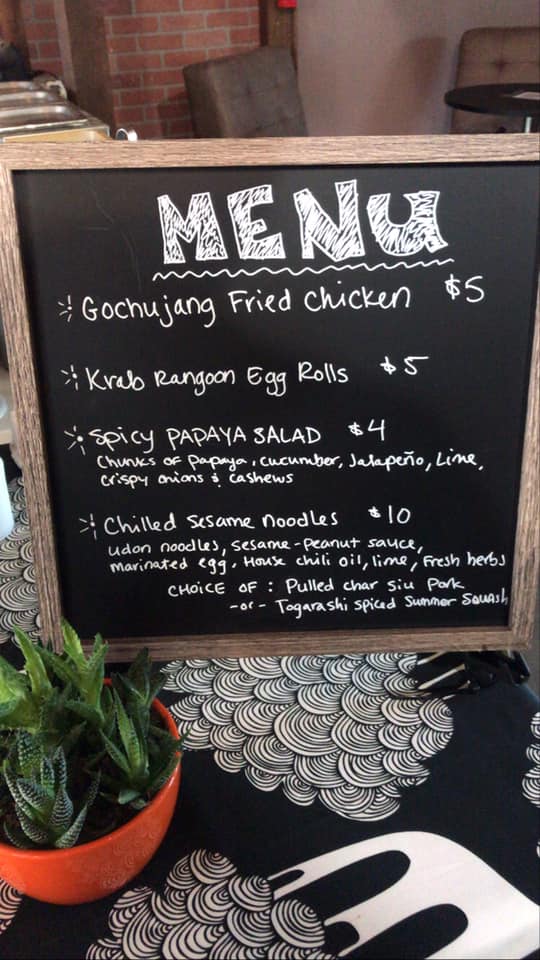 MENU
Gochujang Fried Chicken $5
Krab Rangoon Egg Rolls $5
Spicy PAPAYA SALAD $4
Chunks of Papaya, cucumber, Jalapeño, Lime,
crispy onions & cashews
Chilled Sesame noodles $10
udon noodles, sesame-peanut sauce,
marinated egg, House chili oil, lime, Fresh herbs
CHOICE OF : Pulled char siu Pork
-or- Togarashi spiced Summer SQUASH